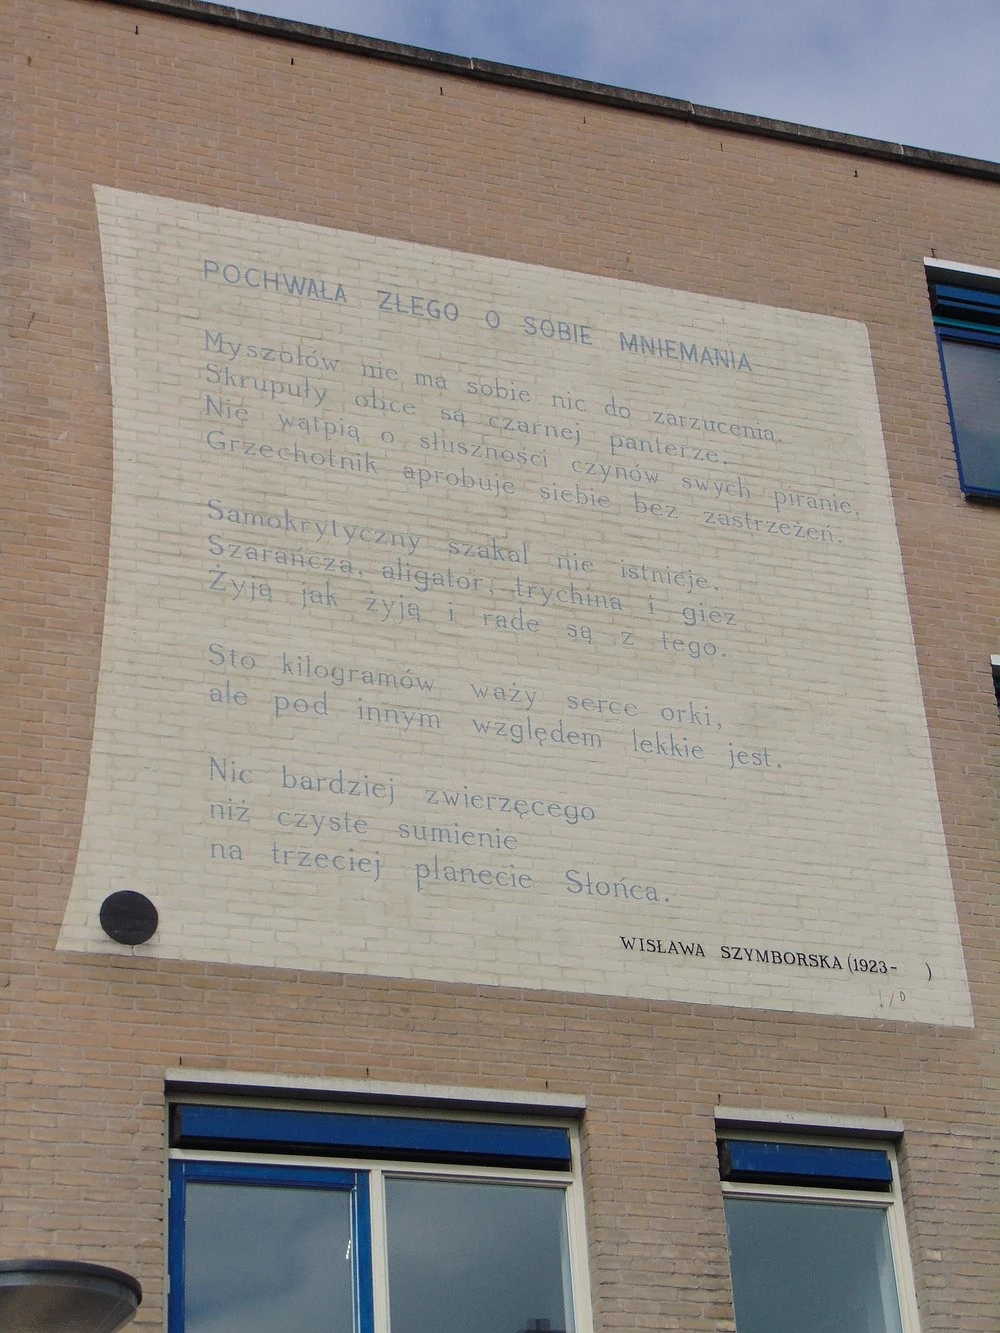 POCHWAŁA ZŁEGO O SOBIE MNIEMANIA
Myszołów nie ma sobie nic do zarzucenia.
Skrupuły obce są czarnej panterze.
Nie wątpią o słuszności czynów swych piranie.
Grzechotnik aprobuje siebie bez zastrzeżeń.
Samokrytyczny szakal nie istnieje.
Szarańcza, aligator, trychina i giez
Żyją jak żyją i rade są z tego.
Sto kilogramów waży serce orki,
ale pod innym względem lekkie jest.
Nic bardziej zwierzęcego
niż czyste sumienie
na trzeciej planecie Słońca.
WISŁAWA SZYMBORSKA (1923- )